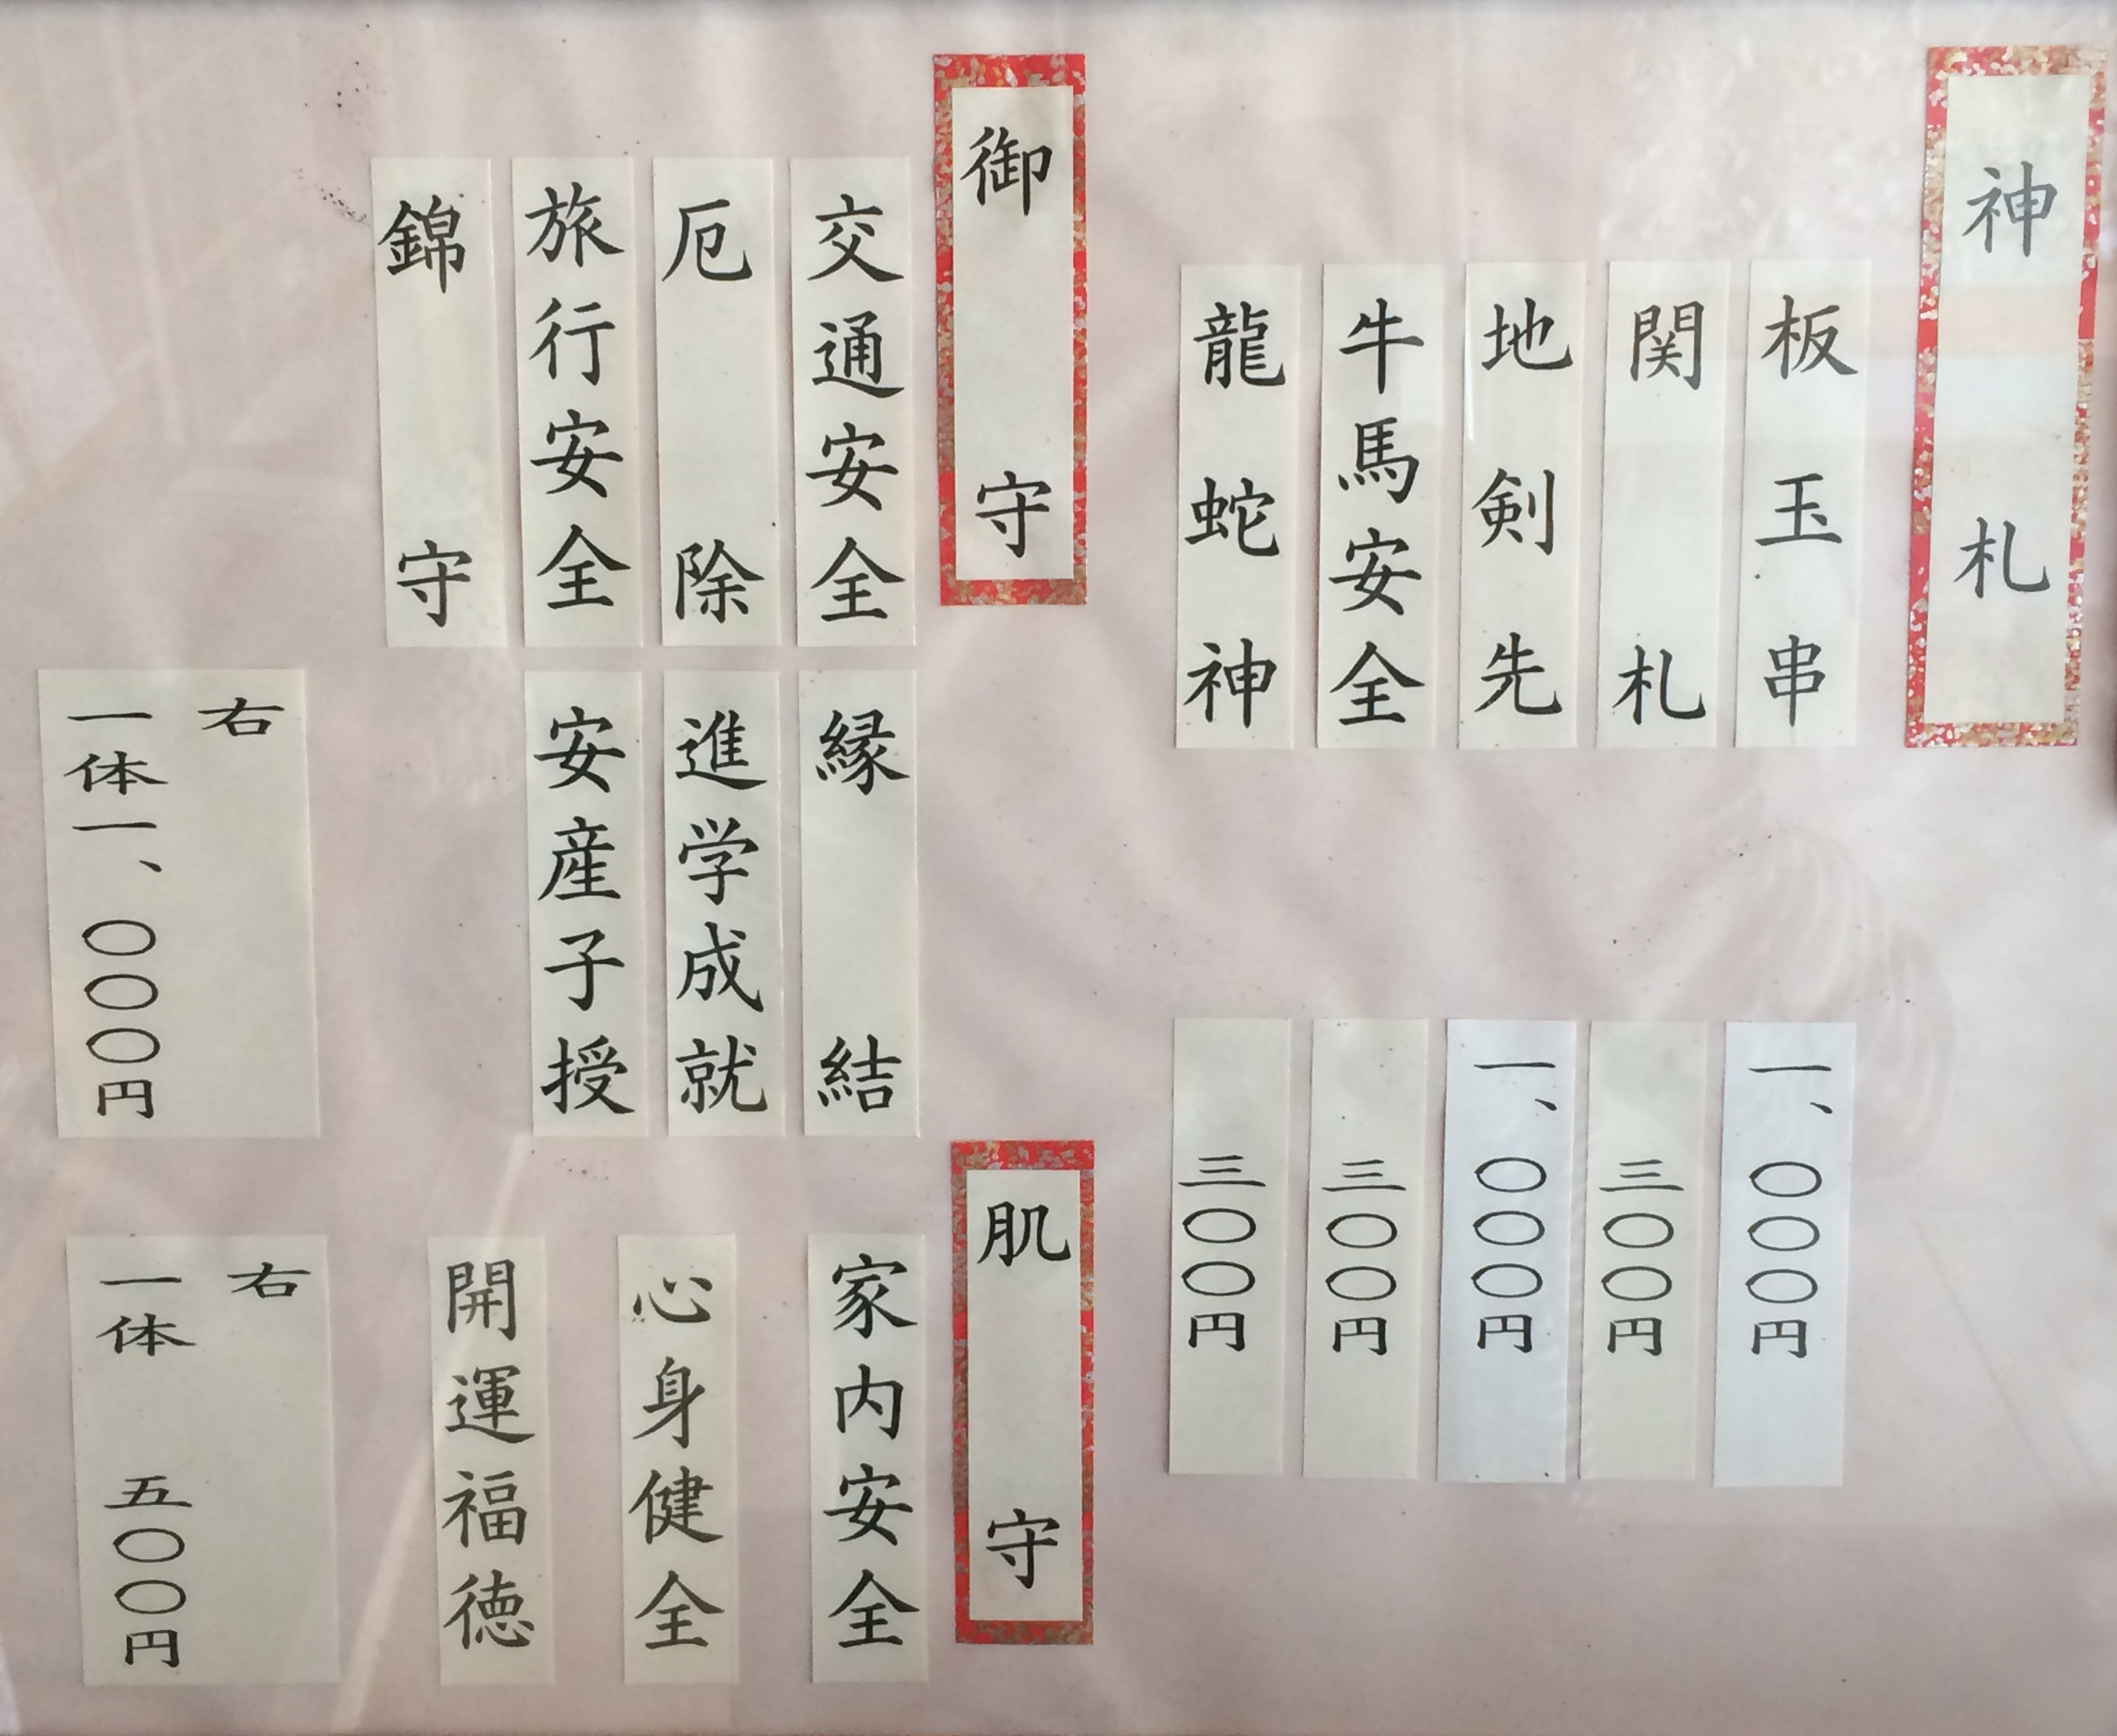 神札
板玉串
一、〇〇〇円
関札
三〇〇円
地剣先
一、〇〇〇円
牛馬安全
三〇〇円
龍蛇神
三〇〇円
御守
交通安全
厄除
旅行安全
錦守
縁結
進学成就
安産子授
右
一体一、〇〇〇円
肌守
家内安全
心身健全
開運福徳
右
一体 五〇〇円